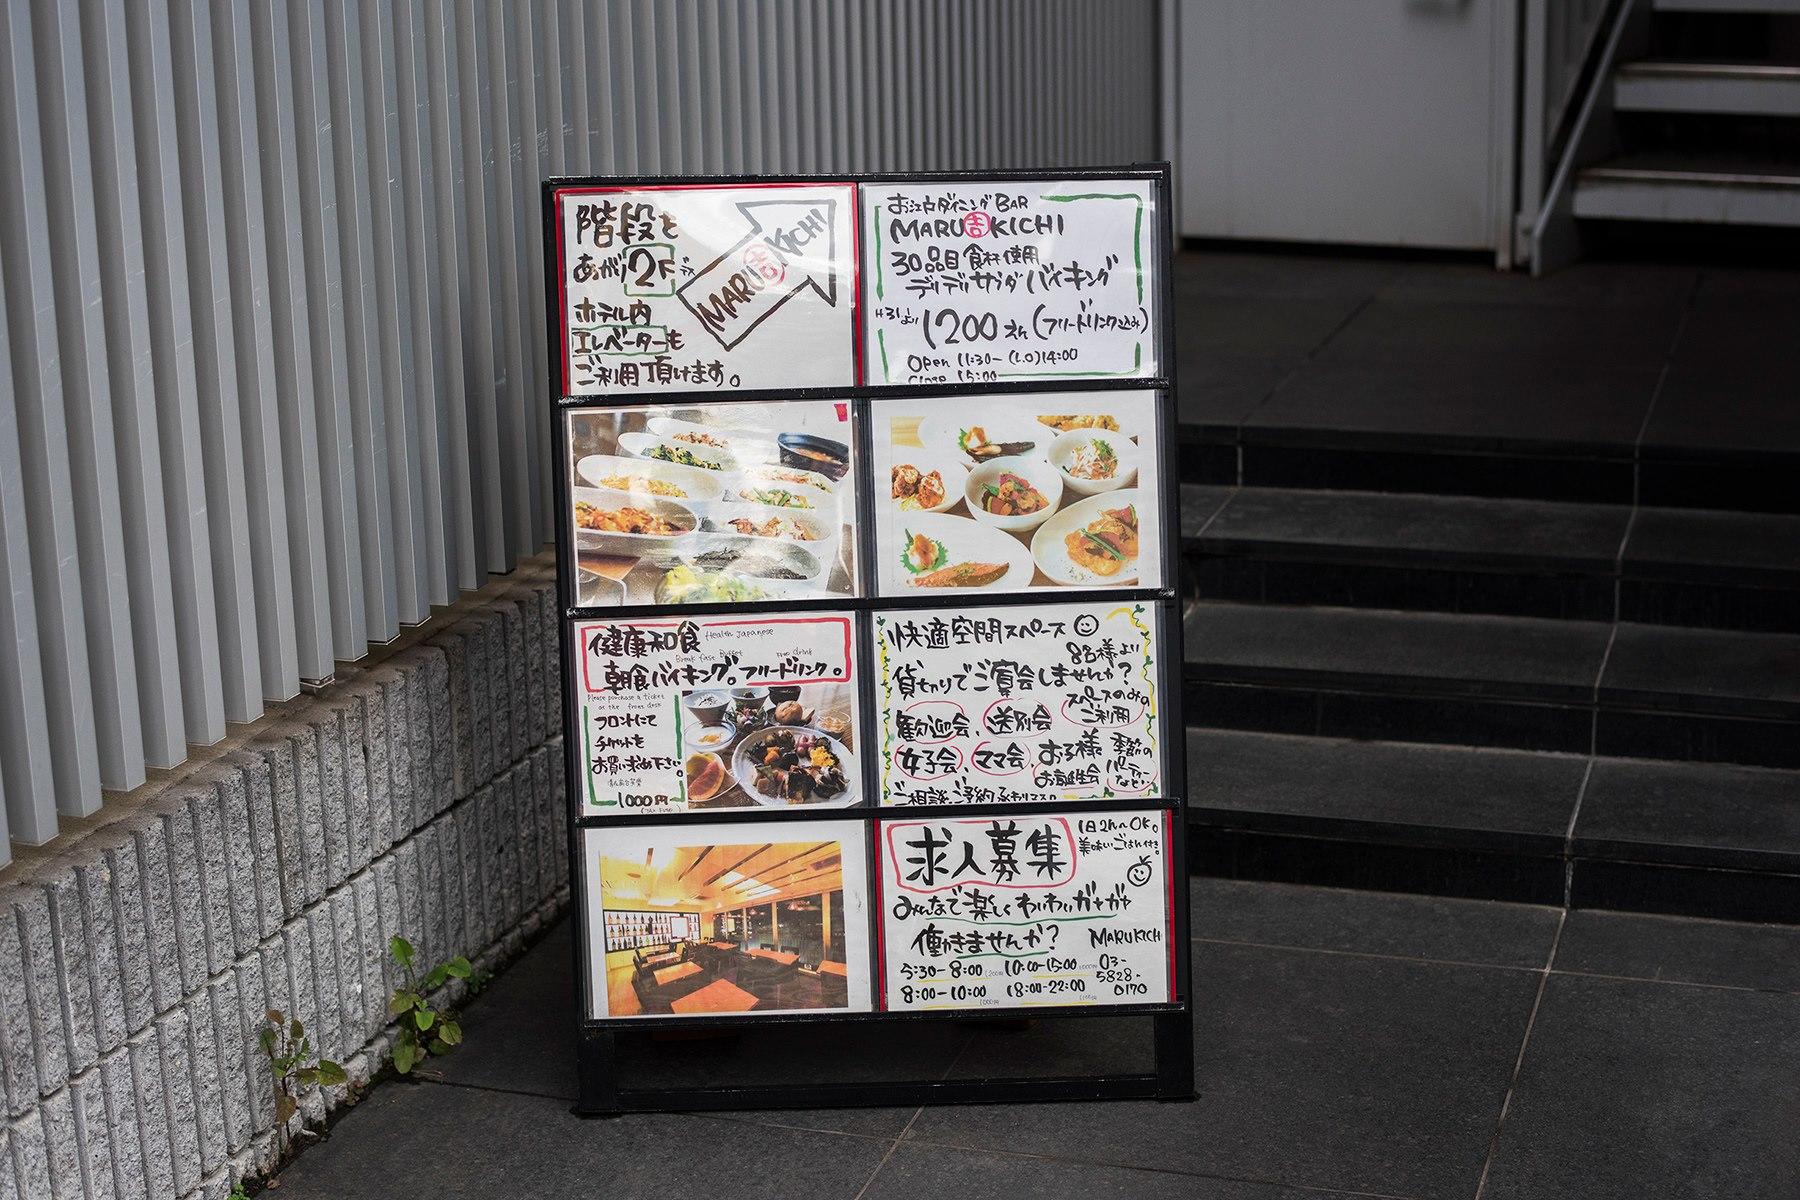 階段を
あがり2Fデス
MARU吉KICHI
ホテル内
エレベーターも
ご利用頂けます。
お江戸ダイニングBAR
MARU吉KICHI
30品目食材使用
デリデリサラダバイキング
H31より 1200えん(フリードリンク込み)
Open 11:30-(L.O)14:00
Close 15:00
健康和食 Health Japanese
Break fast Buffet Free drink
朝食バイキング。フリードリンク。
Please purchase a ticket
at the front desk
フロントにて
チケットを
お買い求め下さい。
1000円
快適空間スペース
8名様より
貸切りでご宴会しませんか?
歓迎会、送別会 スペースのみのご利用
女子会、ママ会、お子様お誕生会 季節のパーティーなど…
ご相談、ご予約承ります
求人募集
1日2h〜OK。
美味しいごはん付き。
みんなで楽しくわいわいガヤガヤ
働きませんか?
MARUKICHI
03-5828-0170
5:30-8:00 10:00-15:00
8:00-10:00 18:00-22:00